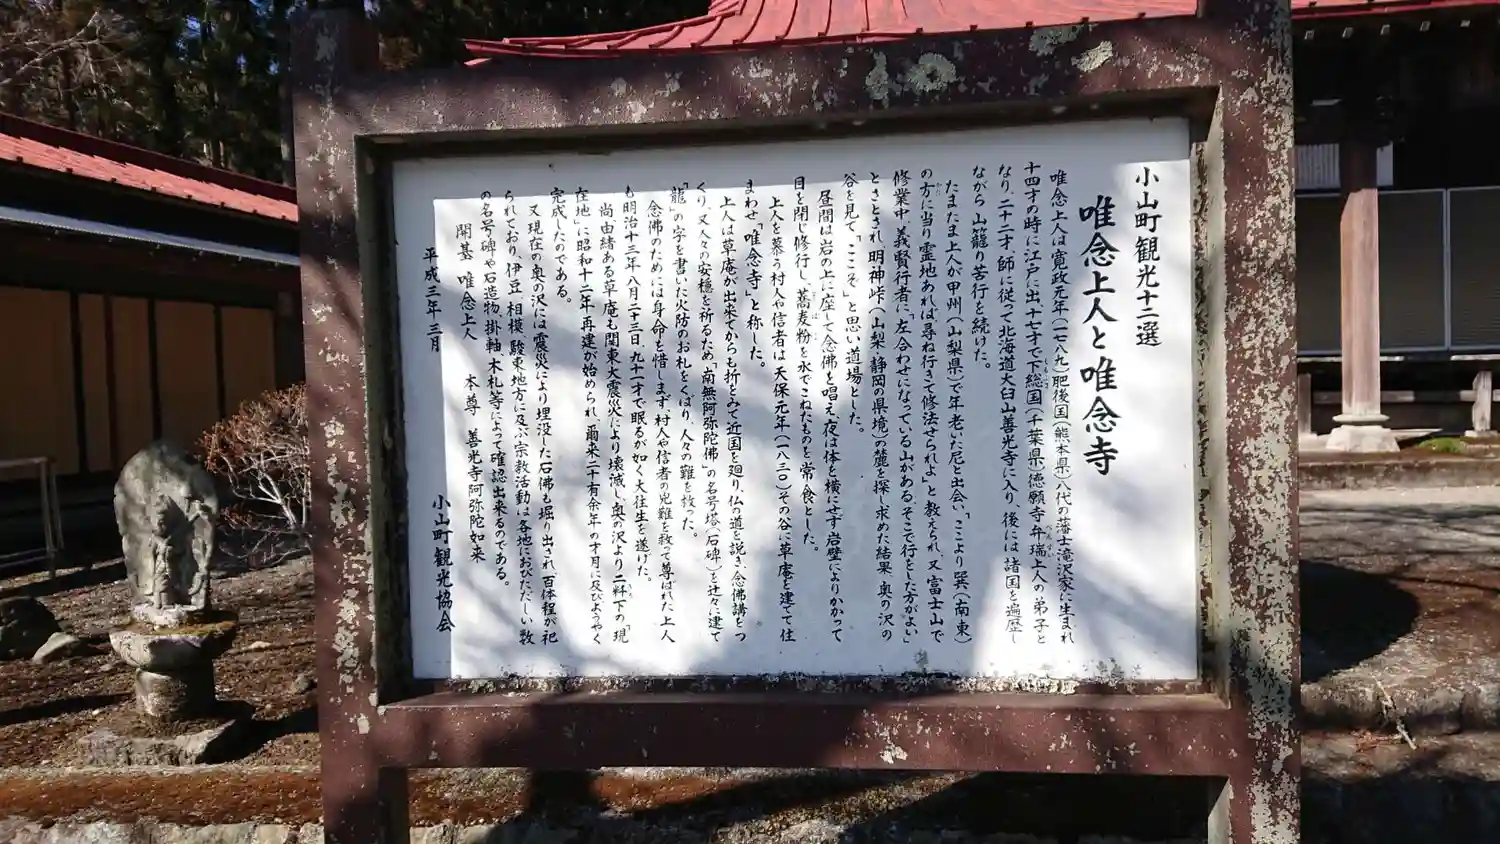 小山町観光十二選
唯念上人と唯念寺
唯念上人は寛政元年(一七八九)肥後国(熊本県)八代の藩士滝沢家に生まれ
十四才の時に江戸に出、十七才で下総国(千葉県)徳願寺弁瑞上人の弟子と
なり、二十二才、師に従って北海道大臼山善光寺に入り、後には諸国を遍歴し
ながら、山籠り苦行を続けた。
たまたま上人が甲州(山梨県)で年老いた尼と出会い、「ここより巽(南東)
の方に当り霊地あれば尋ね行きて修法せられよ」と教えられ、又富士山で
修業中、義賢行者に、「左合わせになっている山がある、そこで行をした方がよい」
とさとされ、明神峠(山梨、静岡の県境)の麓を探し求めた結果、奥の沢の
谷を見て、「ここぞ」と思い道場とした。
昼間は岩の上に座して念佛を唱え、夜は体を横にせず岩壁によりかかって
目を閉じ修行し、蕎麦粉を水でこねたものを常食とした。
上人を慕う村人や信者は天保元年(一八三〇)その谷に草庵を建てて住
まわせ「唯念寺」と称した。
上人は草庵が出来てからも折をみて近国を廻り、仏の道を説き、念佛講をつ
くり、又人々の安穏を祈るため、「南無阿弥陀佛」の名号塔(石碑)を辻々に建て
「龍」の字を書いた火防のお札をくばり、人々の難を救った。
念佛のためには身命を惜しまず、村人や信者の災難を救って尊ばれた上人
も明治十三年八月二十三日、九十一才で眠るが如く大往生を遂げた。
尚、由緒ある草庵も関東大震災により壊滅し、奥の沢より二粁下の「現
在地」に昭和十二年再建が始められ、爾来二十有余年の才月に及びようやく
完成したのである。
又現在の奥の沢には震災により埋没した石佛も堀り出され、百体程が祀
られており、伊豆、相模、駿東地方に及ぶ宗教活動は各地におびただしい数
の名号碑や石造物、掛軸、木札等によって確認出来るのである。
開基 唯念上人 本尊 善光寺阿弥陀如来
平成三年三月 小山町観光協会